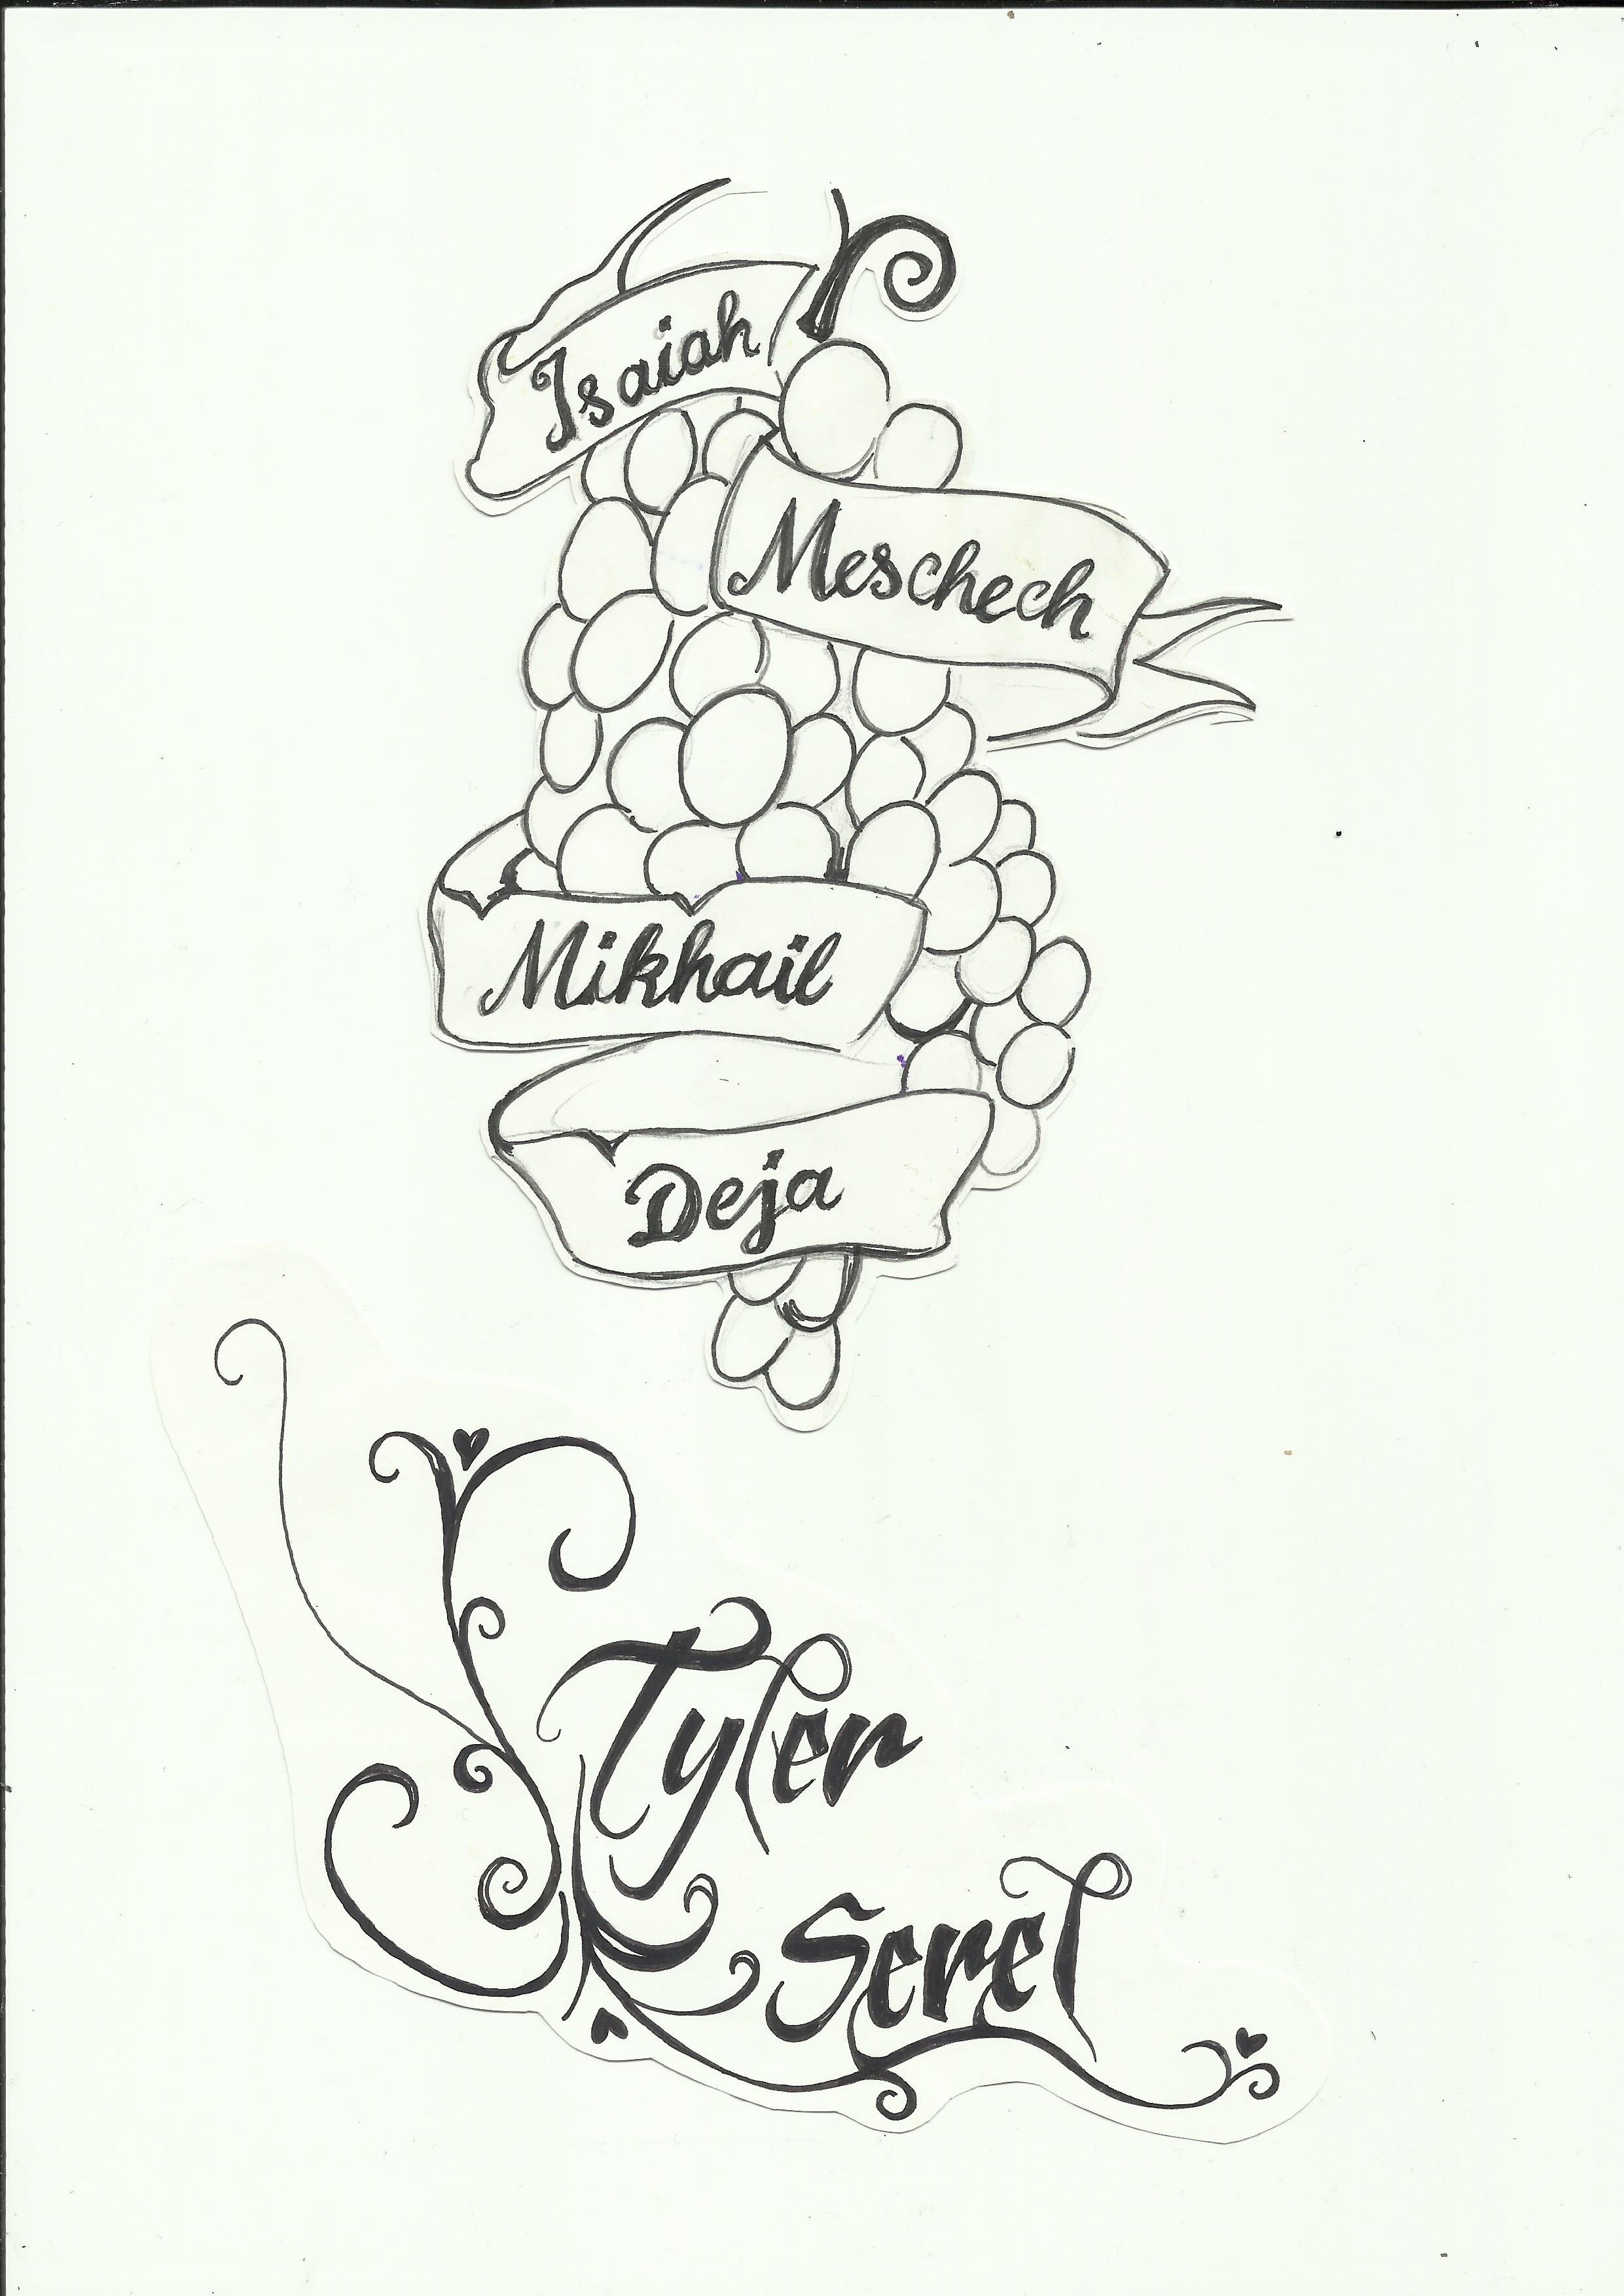 Isaiah
Meschech
Mikhail
Deja
Tyler
Serel